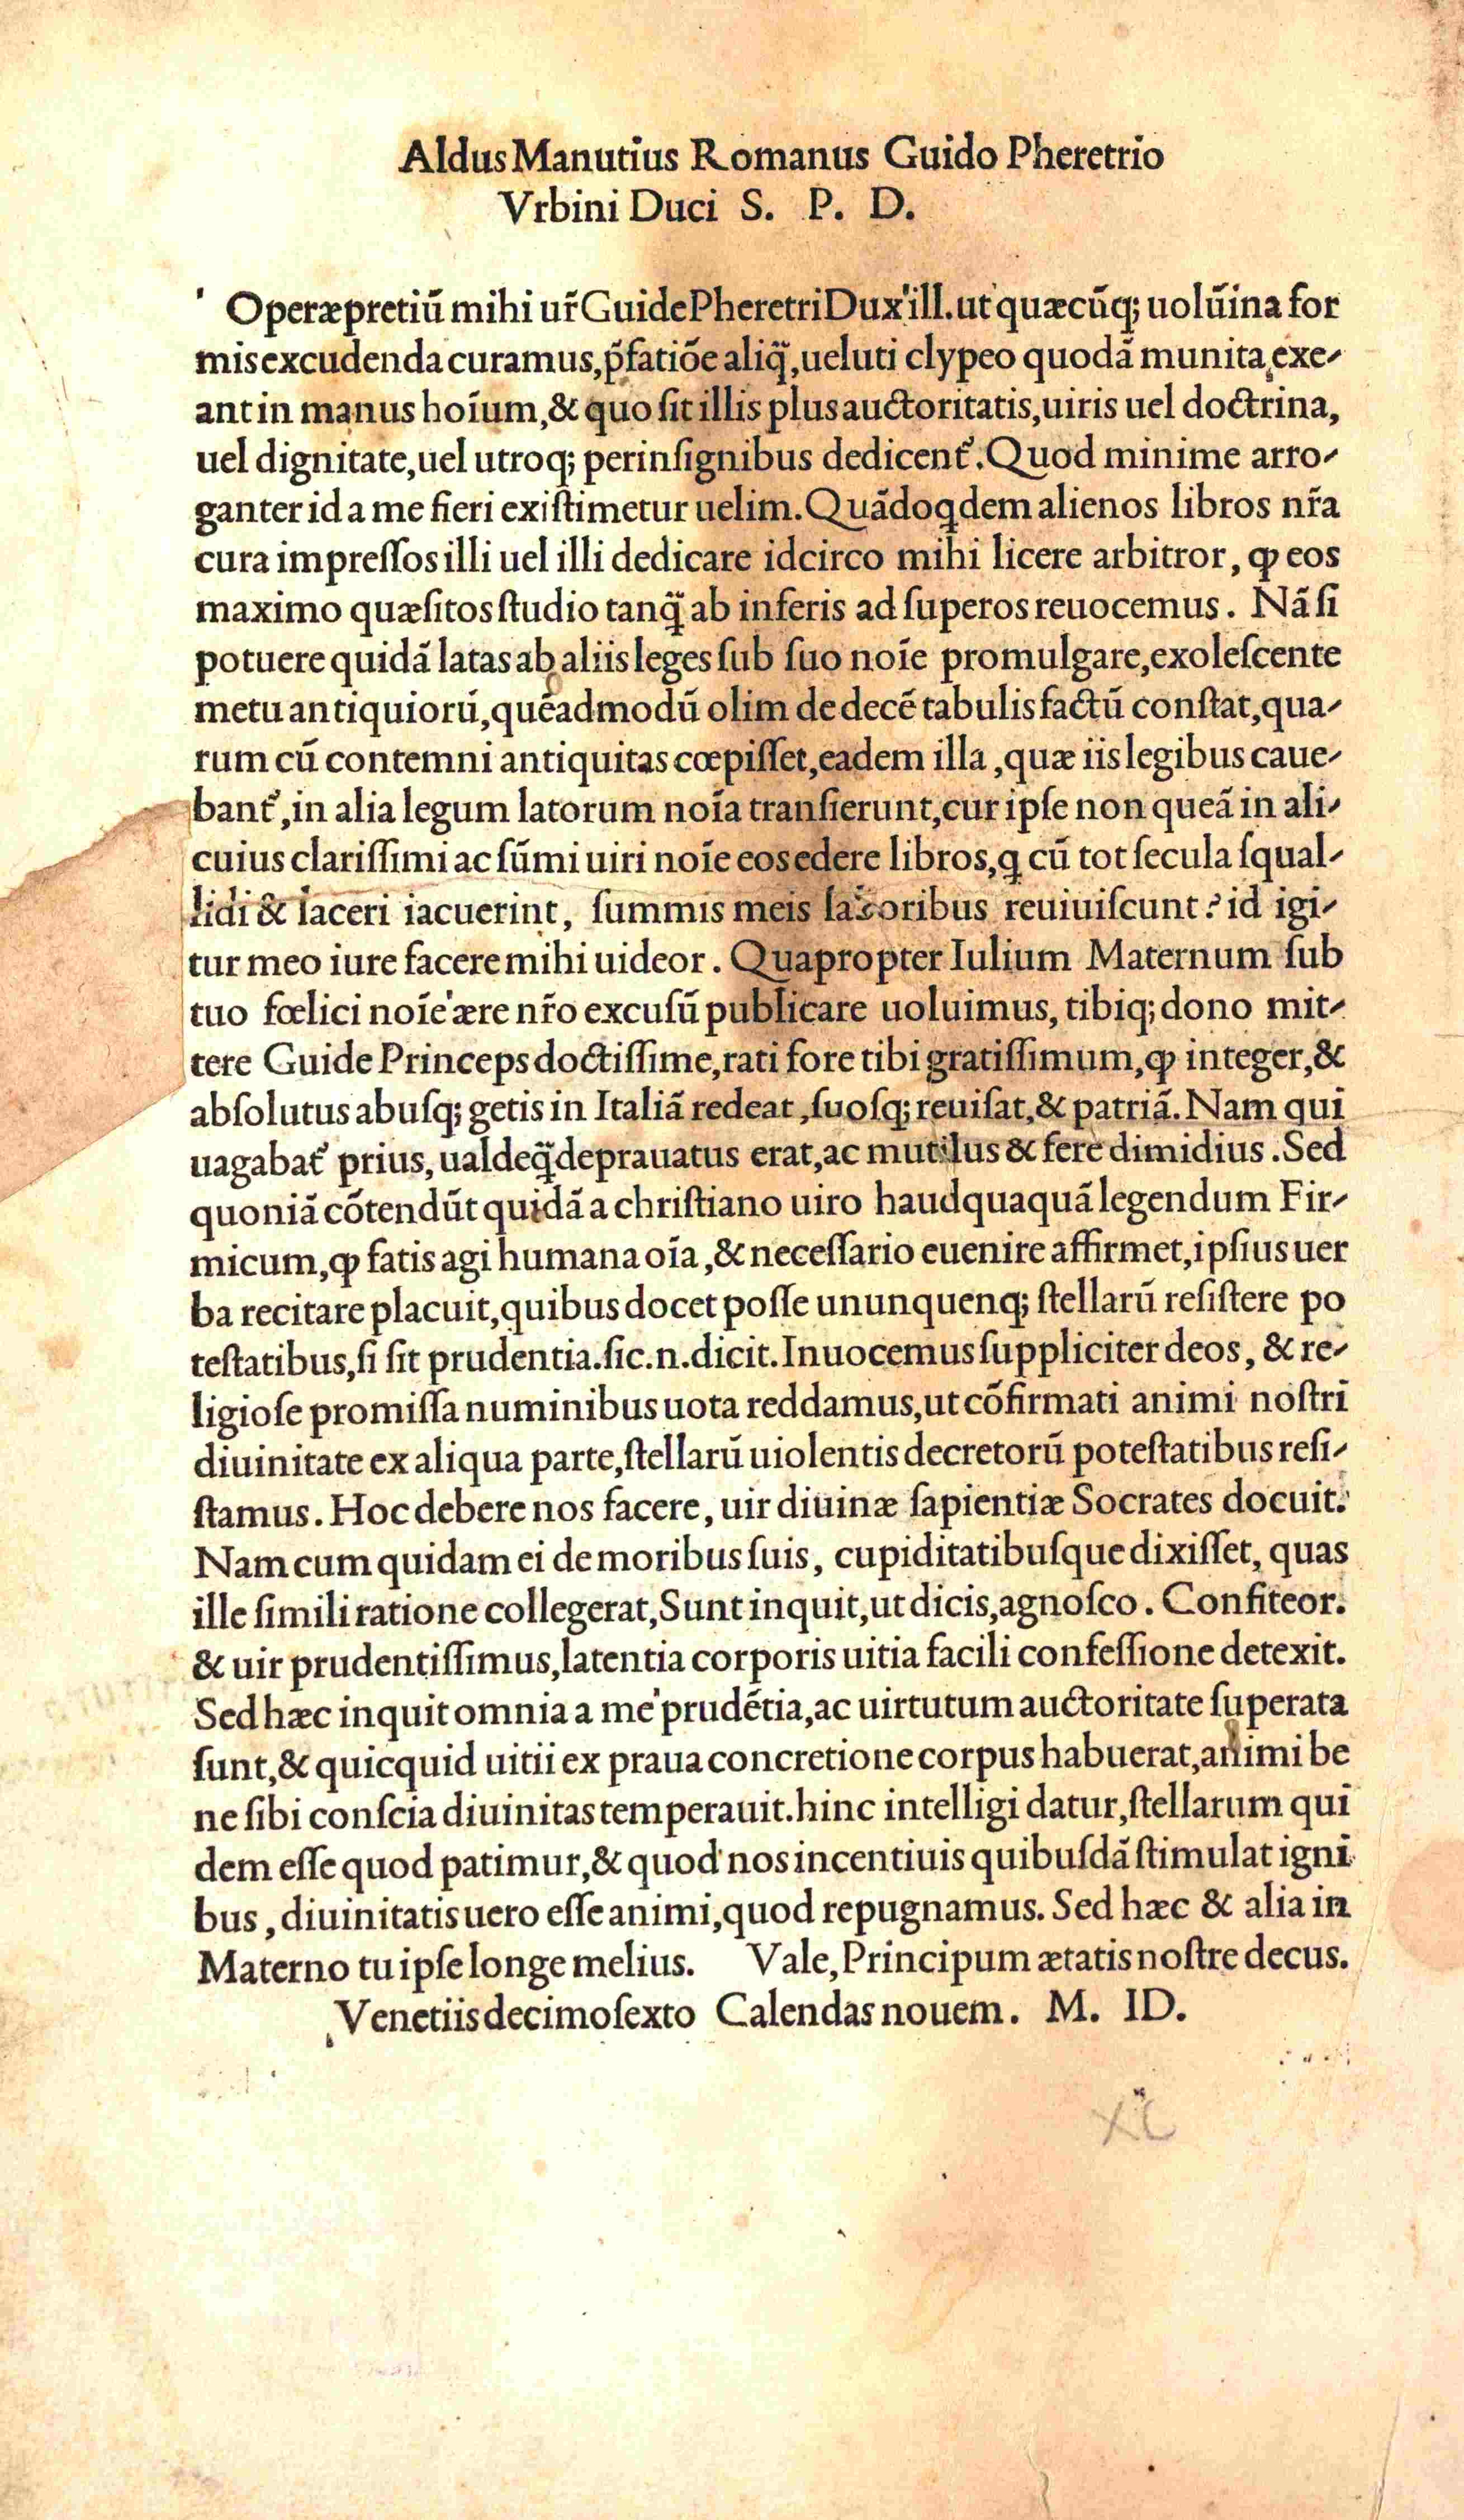 Aldus Manutius Romanus Guido Pheretrio
Vrbini Duci S. P. D.
Operæpretiũ mihi ur̃ Guide Pheretri Dux ill. ut quæcũq; uolũina for
mis excudenda curamus, p̃fatiõe aliq̃, ueluti clypeo quodã munita exe-
ant in manus hoĩum, & quo ſit illis plus auctoritatis, uiris uel doctrina,
uel dignitate, uel utroq; perinſignibus dedicent᷑. Quod minime arro-
ganter id a me fieri exiſtimetur uelim. Quãdoqdem alienos libros nr̃a
cura impreſſos illi uel illi dedicare idcirco mihi licere arbitror, ꝙ eos
maximo quæſitos ſtudio tanq̃ ab inferis ad ſuperos reuocemus. Nã ſi
potuere quidã latas ab aliis leges ſub ſuo noĩe promulgare, exoleſcente
metu antiquiorũ, quẽadmodũ olim de decẽ tabulis factũ conſtat, qua-
rum cũ contemni antiquitas cœpiſſet, eadem illa, quæ iis legibus caue-
bant᷑, in alia legum latorum noĩa tranſierunt, cur ipſe non queã in ali-
cuius clariſſimi ac ſũmi uiri noĩe eos edere libros, q cũ tot ſecula ſqual-
lidi & laceri iacuerint, ſummis meis laboribus reuiuiſcunt? id igi-
tur meo iure facere mihi uideor. Quapropter Iulium Maternum ſub
tuo fœlici noĩe ære nr̃o excuſũ publicare uoluimus, tibiq; dono mit-
tere Guide Princeps doctiſſime, rati fore tibi gratiſſimum, ꝙ integer, &
abſolutus abuſq; getis in Italiã redeat, ſuoſq; reuiſat, & patriã. Nam qui
uagabat᷑ prius, ualdeq̃ deprauatus erat, ac mutilus & fere dimidius. Sed
quoniã cõtendũt quidã a chriſtiano uiro haudquaquã legendum Fir-
micum, ꝙ fatis agi humana oĩa, & neceſſario euenire affirmet, ipſius uer
ba recitare placuit, quibus docet poſſe ununquenq; ſtellarũ reſiſtere po
teſtatibus, ſi ſit prudentia. ſic .n. dicit. Inuocemus ſuppliciter deos, & re-
ligioſe promiſſa numinibus uota reddamus, ut cõfirmati animi noſtri
diuinitate ex aliqua parte, ſtellarũ uiolentis decretorũ poteſtatibus reſi-
ſtamus. Hoc debere nos facere, uir diuinæ ſapientiæ Socrates docuit.
Nam cum quidam ei de moribus ſuis, cupiditatibuſque dixiſſet, quas
ille ſimili ratione collegerat, Sunt inquit, ut dicis, agnoſco. Confiteor.
& uir prudentiſſimus, latentia corporis uitia facili confeſſione detexit.
Sed hæc inquit omnia a me prudẽtia, ac uirtutum auctoritate ſuperata
ſunt, & quicquid uitii ex praua concretione corpus habuerat, animi be
ne ſibi conſcia diuinitas temperauit. hinc intelligi datur, ſtellarum qui
dem eſſe quod patimur, & quod nos incentiuis quibuſdã ſtimulat igni
bus, diuinitatis uero eſſe animi, quod repugnamus. Sed hæc & alia in
Materno tu ipſe longe melius. Vale, Principum ætatis noſtre decus.
Venetiis decimoſexto Calendas nouem. M. ID.